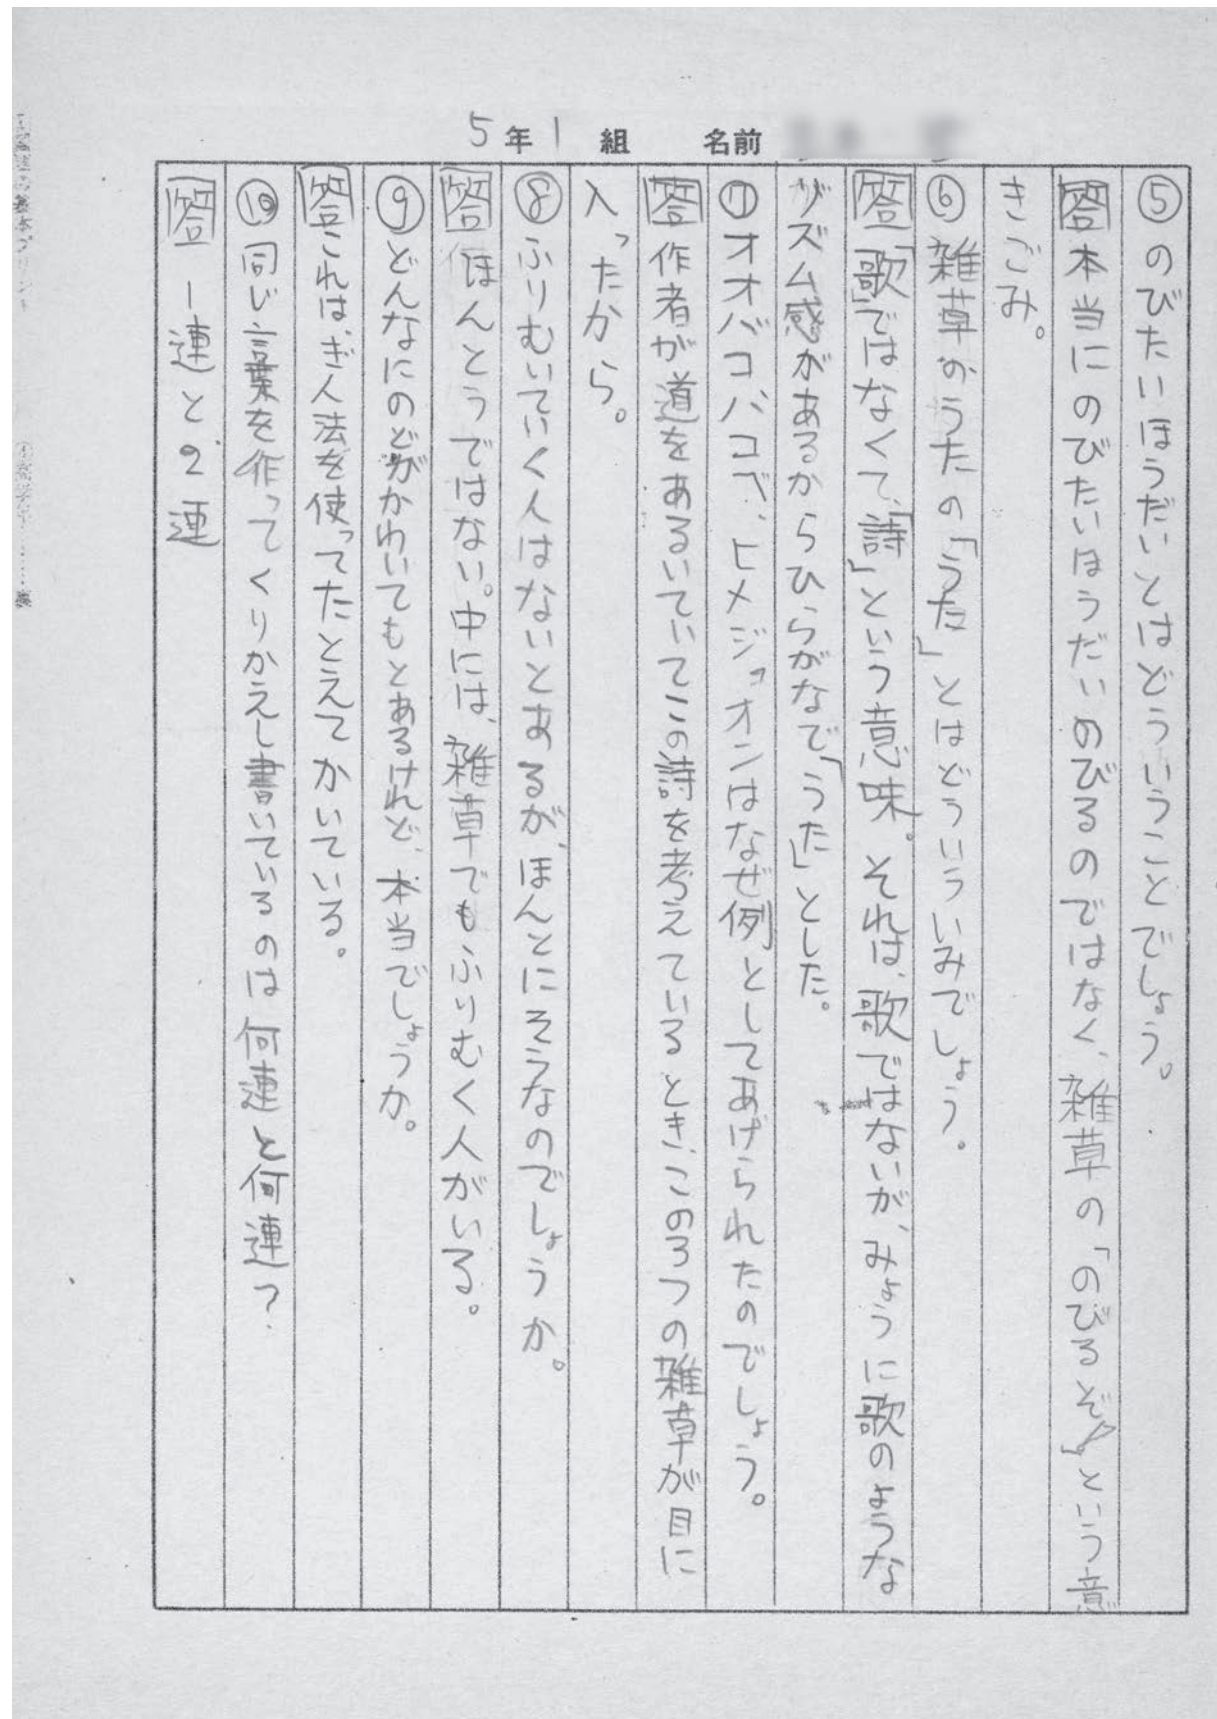 5年1組 名前
⑤のびたいほうだいとはどういうことでしょう。
答本当にのびたいほうだいのびるのではなく、雑草の「のびるぞ」という意
きごみ。
⑥雑草のうたの「うた」とはどういういみでしょう。
答「歌」ではなくて、「詩」という意味。それは、歌ではないが、みょうに歌のような
リズム感があるからひらがなで「うた」とした。
⑦オオバコ、ハコベ、ヒメジョオンはなぜ例としてあげられたのでしょう。
答作者が道をあるいていてこの詩を考えているとき、この3つの雑草が目に
入ったから。
⑧ふりむいていく人はないとあるが、ほんとにそうなのでしょうか。
答ほんとうではない。中には、雑草でもふりむく人がいる。
⑨どんなにのどがかわいてもとあるけれど、本当でしょうか。
答これは、ぎ人法を使ってたとえてかいている。
⑩同じ言葉を作ってくりかえし書いているのは何連と何連?
答 1連と、2連